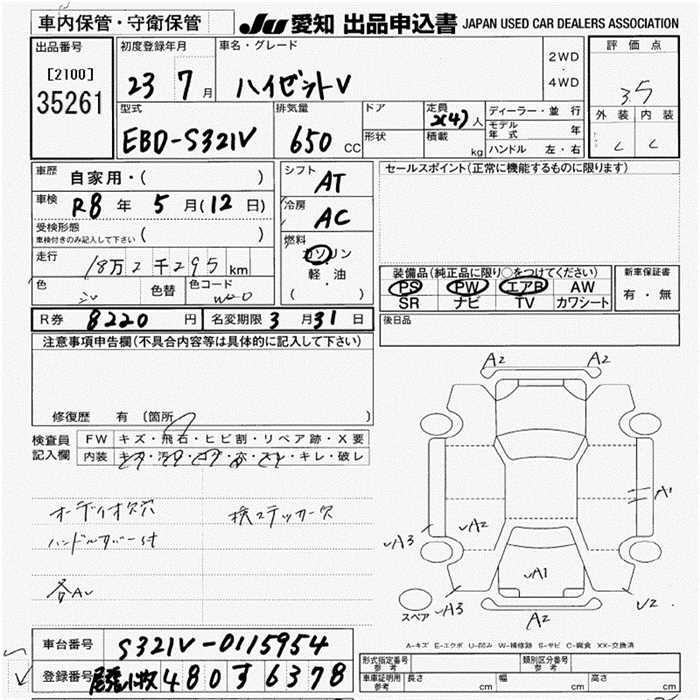 車内保管・守衛保管
JU 愛知 出品申込書 JAPAN USED CAR DEALERS ASSOCIATION
出品番号
[2100]
35261
初度登録年月
23 7月
車名・グレード
ハイゼットV
2WD
・
4WD
評価点
3.5
外装 内装
C C
型式
EBD-S321V
排気量
650 CC
ドア
形状
定員
2(4)人
積載 kg
ディーラー・並行
モデル年式 年
ハンドル 左・右
車歴
自家用・( )
車検
R8年 5月(12日)
受検形態
車検付きのみ記入して下さい ( )
走行
18万2千295km
色
色替
色コード
W20
シフト
AT
冷房
AC
燃料
ガソリン
・
軽油
( )
セールスポイント(正常に機能するものに限ります)
装備品(純正品に限り○をつけてください)
PS PW エアB AW
SR ナビ TV カワシート
新車保証書
有・無
R券 8220円 名変期限 3月31日
後日品
注意事項申告欄(不具合内容等は具体的に記入して下さい)
修復歴 有 〔箇所
検査員記入欄
FW キズ・飛石・ヒビ割・リペア跡・X要
内装 キズ・汚レ・コゲ・穴・スレ・キレ・破レ
オーディオ欠穴 検ステッカー欠
ハンドルカバー付
A2 A2
A1
A2
A3
A1
A3
A2
U2
スペア
A-キズ E-エクボ U-凹み W-補修跡 S-サビ C-腐食 XX-交換済
車台番号 S321V-0115954
登録番号 尾張小牧 480す6378
形式指定番号
参考
類別区分番号
参考
車庫証明用
参考
長さ cm 幅 cm 高さ cm